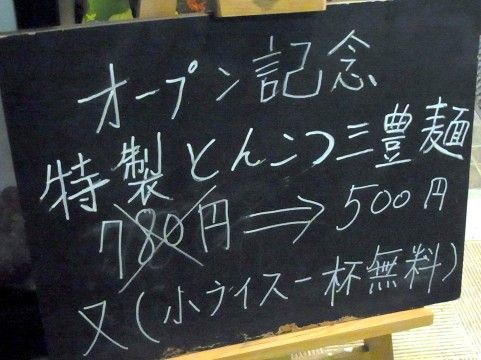 オープン記念
特製とんこつ三豊麺
780円⇒500円
又(小ライス一杯無料)